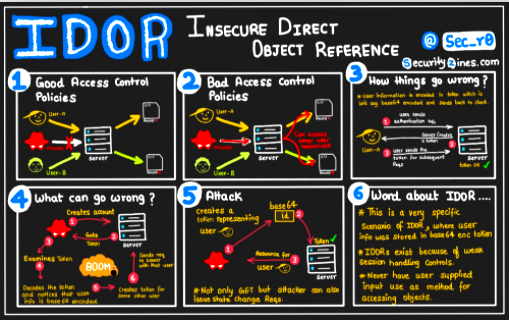 IDOR
INSECURE DIRECT
OBJECT REFERENCE
@ Sec_r0
SecurityZines.com
1
Good Access Control
Policies
User-A
Server
User-B
2
Bad Access Control
Policies
User-A
Server
User-B
3
How things go wrong?
* User information is encoded in token which is
lets say base64 encoded and sends back to client.
1
user sends
authentication req.
Server Creates
a token
2
User-A
3
user sends the
token for subsequent
Reqs
Server
token OK ✓
4
What can go wrong?
Creates account
1
2
Gets
Token
3
Server
Examines Token
4
BOOM
6
Sends req
to server
with that user
Decodes the token
and notices that user
info is base64 encoded
5
Creates token for
some other user
5
Attack
creates a
token representing
user
base64
id
2
1
Token ✓
Resource for
user
3
Server
* Not only GET but attacker can also
issue state change Reqs.
6
Word about IDOR....
* This is a very specific
Scenario of IDOR, where user
info was stored in base64 enc token
* IDORs exist because of weak
Session handling controls.
* Never have user supplied
input use as method for
accessing objects.